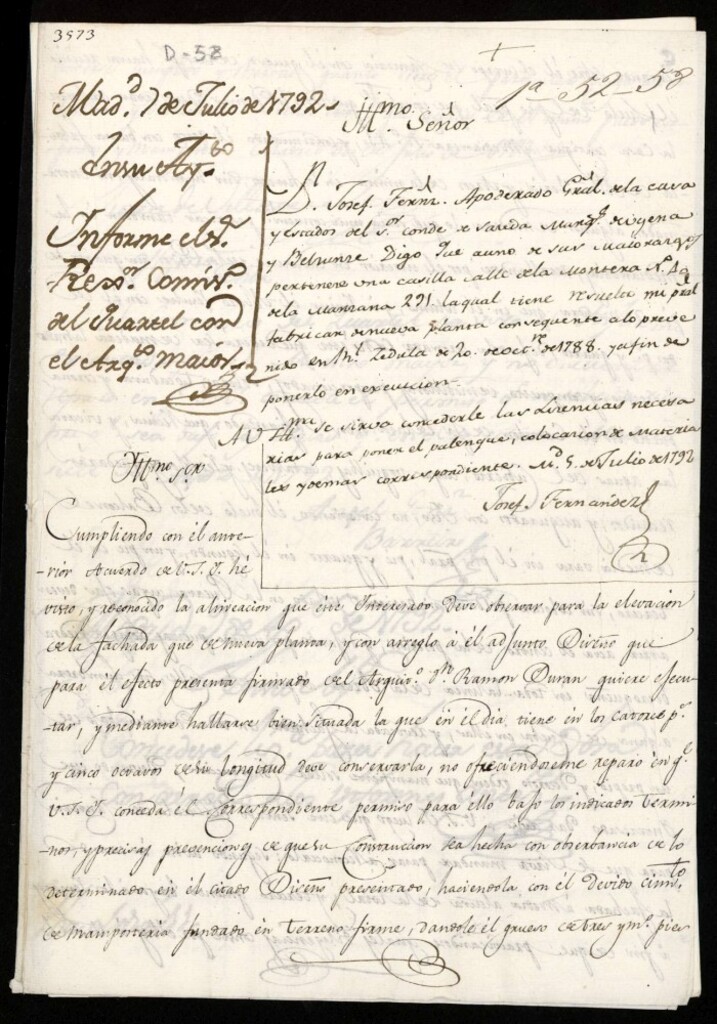 3573
D-58
+
1ª 52-58
Mad.ᵈ 7 de Julio de 1792
En su Ay.ᵗᵒ
Informe el S.ʳ
Rex.ᵒʳ Comis.ᵒ
del Quartel con
el Arq.ᵗᵒ maior
Ill.ᵐᵒ Señor
D.ⁿ Josef Fern.ᶻ Apoderado Gral. de la casa
y estados del S.ᵒʳ conde de Saceda Marq.ˢ de
y Belzunze Digo que a uno de sus Maiorazgos
pertenece una casilla calle de la Montera N.º
de la Manzana 291. la qual tiene resuelto mi pral
fabricar de nueva planta consequente a lo preve
nido en Rl. Zedula de 20. de oct.ʳᵉ de 1788. y a fin de
ponerlo en execucion.
A V. Ill.ᵐᵃ se sirva concederle las Licencias necesa
rias para poner el palenque, colocacion de Materia
les y demas correspondiente. M.ᵈ 5. de Julio de 1792
Josef Fernandez
Ill.ᵐᵒ S.ᵒʳ
Cumpliendo con él ante-
-rior Acuerdo de V.S.I. hé
visto, y reconocido la alineacion que éste Interesado Deve observar para la elevacion
de la fachada que de nueva planta, y con arreglo à él adjunto Diseño que
para él efecto presenta firmado del Arquit.º D.ⁿ Ramon Duran quiere ejecu-
tar, y mediante hallarse bien situada la que én él dia tiene én los catorce p.ˢ
y cinco octavos de su longitud deve conservarla, no ofreciendoseme reparo én q.ᵉ
V.S.I. conceda él Correspondiente permiso para éllo bajo los indicados termi-
-nos, y precisas prevenciones de que su Construcion sea hecha con observancia de lo
determinado en él citado Diseño presentado, haciendola con él devido cim.ᵗᵒ
de mamposteria fundado én terreno firme, dandole él grueso de tres y m.º pies